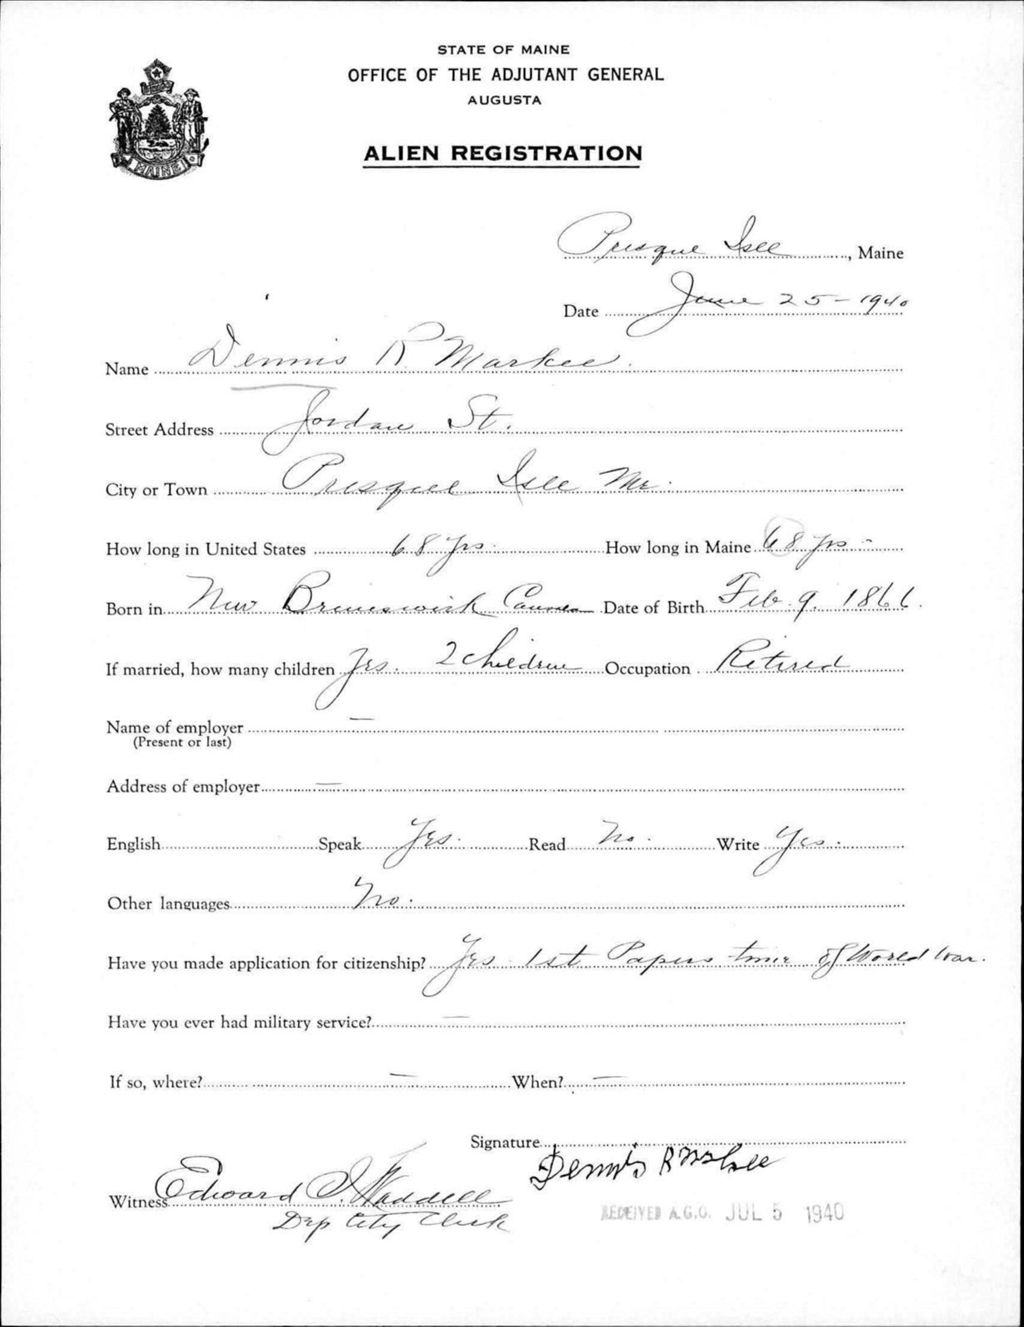 STATE OF MAINE
OFFICE OF THE ADJUTANT GENERAL
AUGUSTA
ALIEN REGISTRATION
MAINE
Presque Isle, Maine
Date June 25 - 1940
Name Dennis R. Markee.
Street Address Jordan St.
City or Town Presque Isle Me.
How long in United States 68 Yrs. How long in Maine 68 yrs -
Born in New Brunswick Date of Birth Feb. 9. 1866.
If married, how many children Yes. 2 children Occupation Retired
Name of employer —
(Present or last)
Address of employer —
English Speak Yes. Read No. Write Yes.
Other languages No.
Have you made application for citizenship? Yes 1st Papers time of World War.
Have you ever had military service? —
If so, where? — When? —
Signature Dennis R
Witness Edward J. Waddell
Dep City Clerk
RECEIVED A.G.O. JUL 5 1940